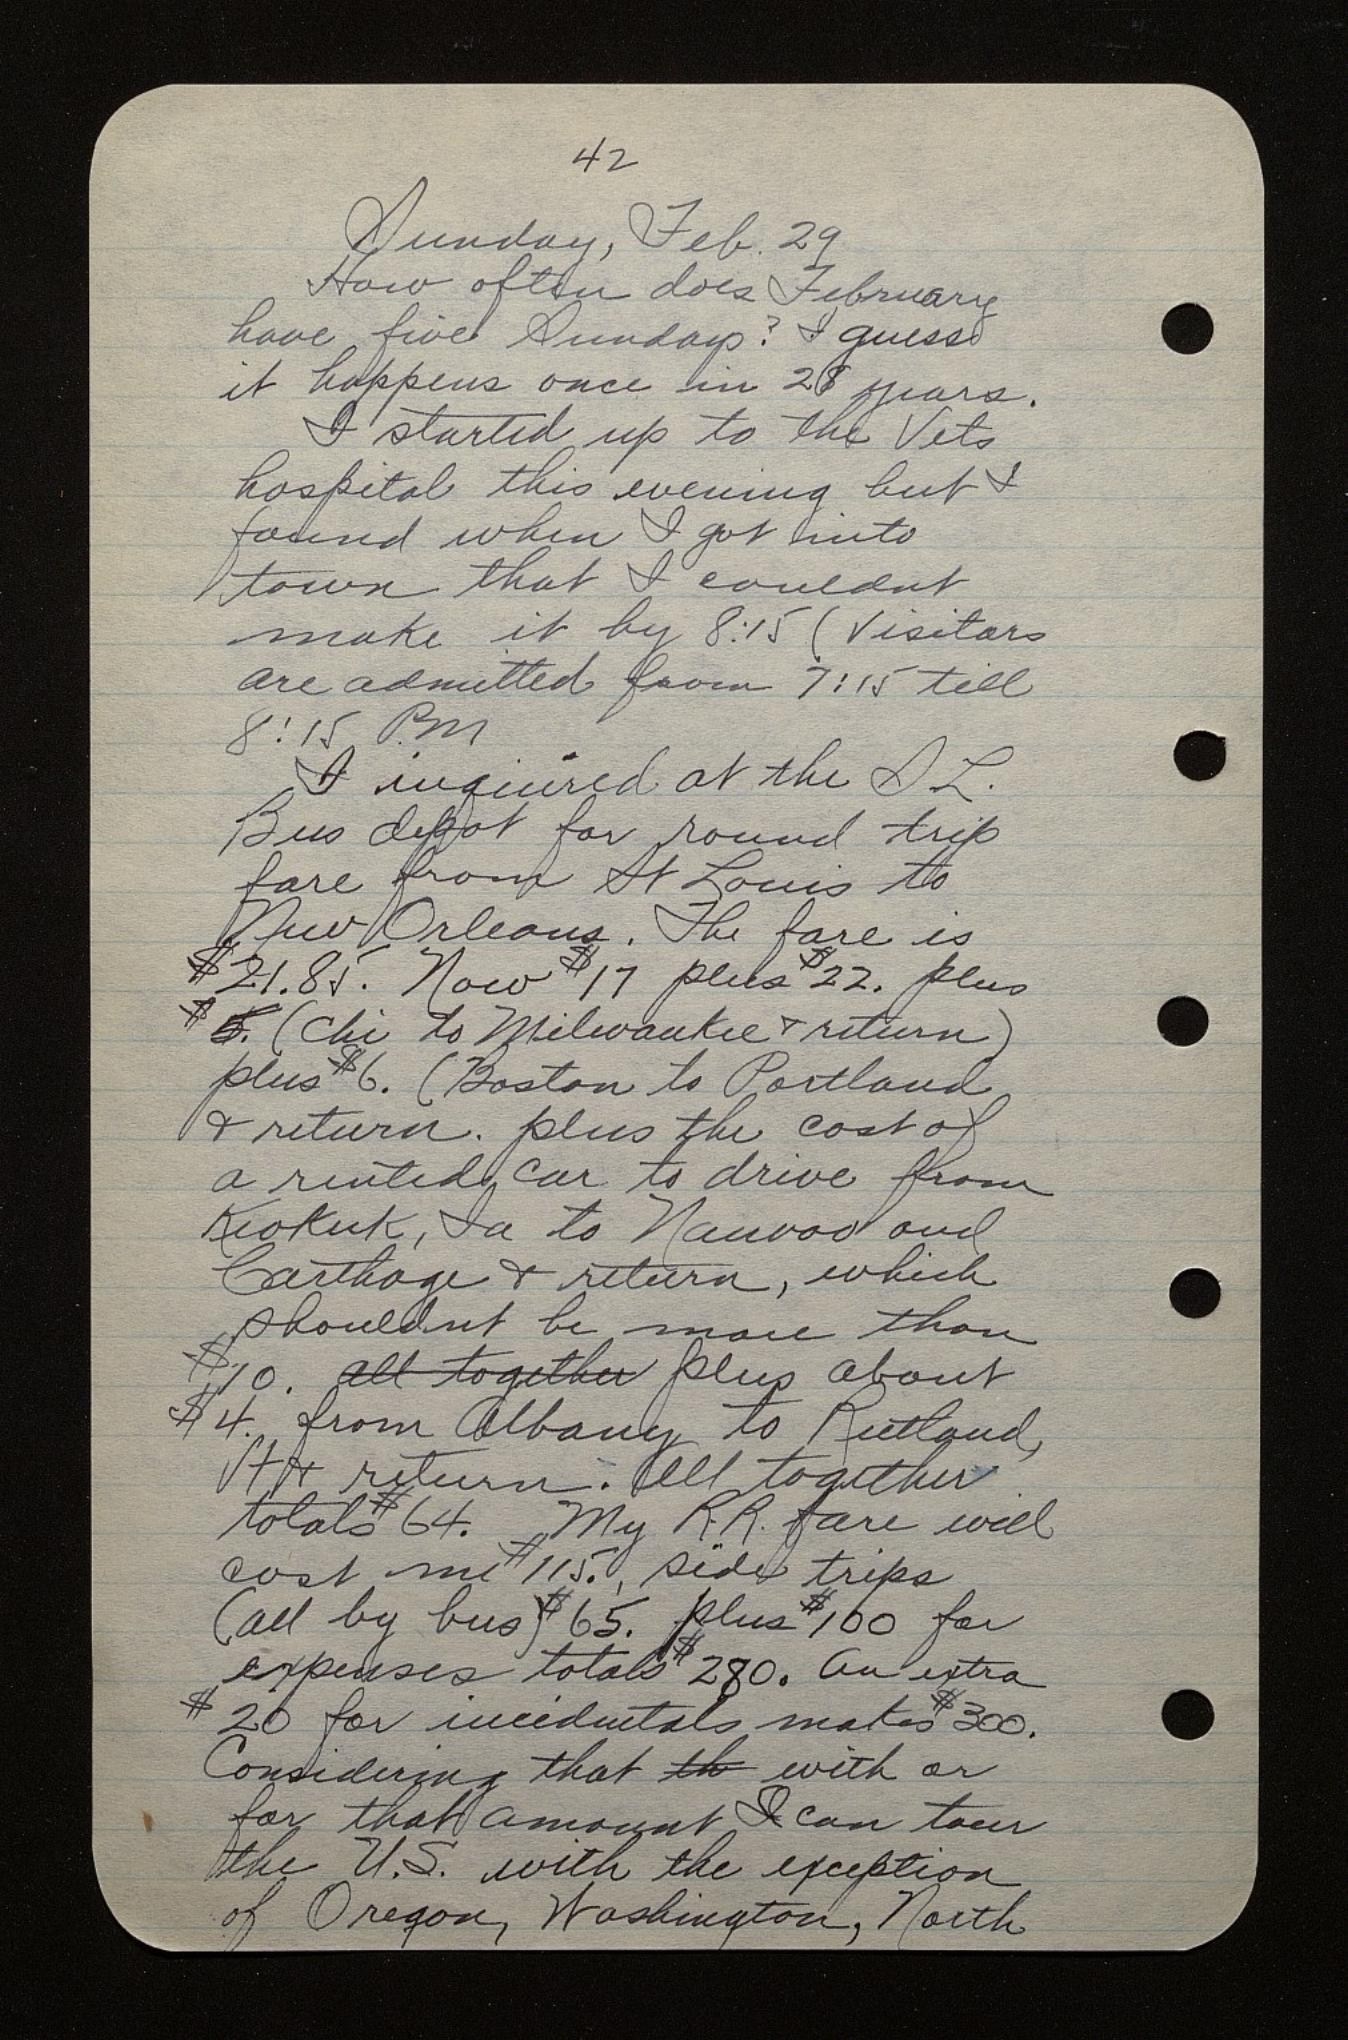 42
Sunday, Feb. 29
How often does February
have five Sundays? I guess
it happens once in 28 years.
I started up to the Vets
hospital this evening but I
found when I got into
town that I couldnt
make it by 8:15 (Visitors
are admitted from 7:15 till
8:15 P.M
I inquired at the S L.
Bus depot for round trip
fare from St Louis to
New Orleans. The fare is
$21.85. Now $17 plus $22. plus
$5. (Chi to Milwaukee & return)
plus $6. (Boston to Portland
& return. plus the cost of
a rented car to drive from
Keokuk, Ia to Nauvoo and
Carthage & return, which
shouldnt be more than
$10. all together plus about
$4. from Albany to Rutland,
Vt & return. All together
totals $64. My R.R. fare will
cost me $115., side trips
(all by bus) $65. plus $100 for
expenses totals $280. An extra
$20 for incidentals makes $300.
Considering that th with or
for that amount I can tour
the U.S. with the exception
of Oregon, Washington, North